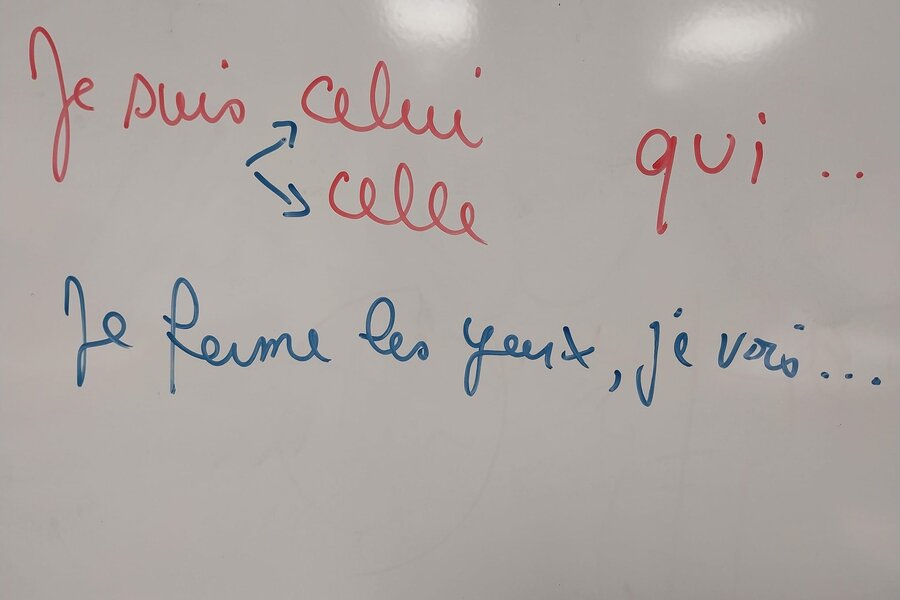 Je suis celui qui ..
celle
Je ferme les yeux, je vois...